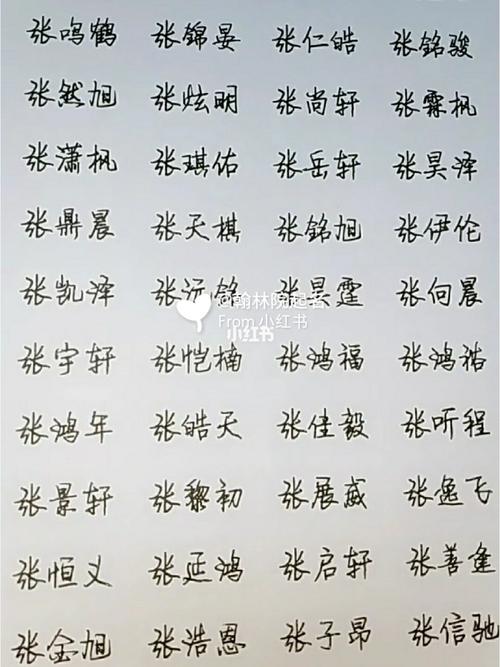 张鸣鹤 张锦晏 张仁皓 张铭骏
张然旭 张炫明 张尚轩 张霖枫
张潇枫 张琪佑 张岳轩 张昊泽
张鼎晨 张天棋 张铭旭 张伊伦
张凯泽 张沂铭 张昊霆 张向晨
@翰林院起名
From 小红书
小红书
张宇轩 张恺楠 张鸿福 张鸿祐
张鸿年 张皓天 张佳毅 张听程
张景轩 张黎初 张展葳 张逸飞
张恒义 张延鸿 张启轩 张善逢
张金旭 张浩恩 张子昂 张信驰